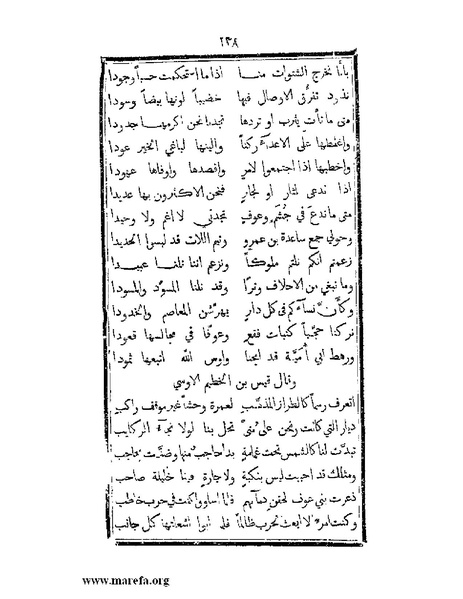 ١٣٨
بانا نخرج الشتوات منا اذا ما استحكمت حسبا وجودا
تفرق الاوصال فيها خضيبا لونها بيضا وسودا
متى ما تأت يثرب او تردها تجدنا نحن اكرمها جدودا
واغلظها على الاعداء ركنا والينها لباغي الخير عودا
واخطبها اذا اجتمعوا لامر واقصدها واوفاها عهودا
اذا ندعى لثار او لجار فنحن الاكثرون بها عديدا
متى ما تدع في جشم وعوف تجدني لا اغم ولا وحيدا
وحولي جمع ساعدة بن عمرو وتيم اللات قد لبسوا الحديدا
زعمتم انكم نلتم ملوكا ونزعم اننا نلنا عبيدا
وما نبغي من الاحلاف وترا وقد نلنا المسود والمسودا
وكأن نساءكم في كل دار يهرشن المعاصم والخدودا
تركنا جحجبا كبنات فقع وعوفا في مجالسها قعودا
ورهط ابي امية قد ابحنا واوس الله اتبعنا ثمودا
وقال قيس بن الخطيم الاوسي
اتعرف رسما كالطراز المذهب لعمرة وحشا غير موقف راكب
ديار التي كانت ونحن على منى تحل بنا لولا نجاء الركايب
تبدت لنا كالشمس تحت غمامة بدا حاجب منها وضنت بحاجب
ومثلك قد احببت ليس بنكبة ولا جارة فينا حليلة صاحب
دعوت بني عوف لحقن دمآئهم فلما ابوا سامحت في حرب حاطب
وكنت امرء لا ابعث الحرب ظالما فلما ابوا اشعلتها كل جانب
www.marefa.org